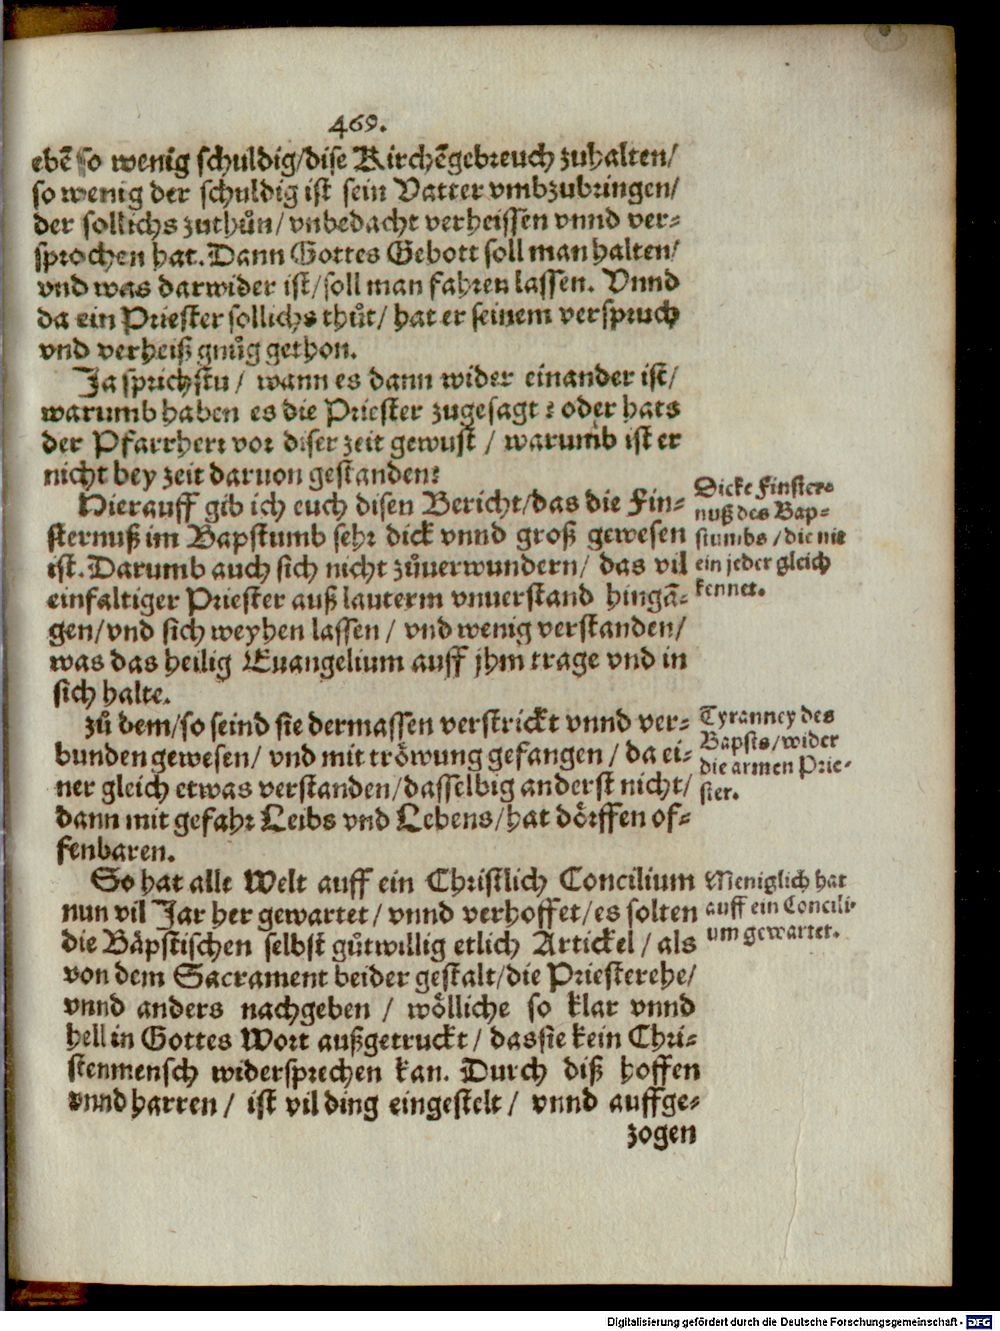 469.
ebē so wenig schuldig/dise Kirchēgebreuch zuhalten/
so wenig der schuldig ist sein Vatter vmbzubringen/
der sollichs zuthůn/ vnbedacht verheissen vnnd ver-
sprochen hat. Dann Gottes Gebott soll man halten/
vnd was darwider ist/soll man fahren lassen. Vnnd
da ein Priester sollichs thůt/ hat er seinem verspruch
vnd verheiß gnůg gethon.
Ja sprichstu / wann es dann wider einander ist/
warumb haben es die Priester zugesagt? oder hats
der Pfarrherr vor diser zeit gewust / warumb ist er
nicht bey zeit daruon gestanden?
Hierauff gib ich euch disen Bericht/das die Fin-
sternuß im Bapstumb sehr dick vnnd groß gewesen
ist. Darumb auch sich nicht zůuerwundern/ das vil
einfaltiger Priester auß lauterm vnuerstand hingā-
gen/vnd sich weyhen lassen / vnd wenig verstanden/
was das heilig Euangelium auff jhm trage vnd in
sich halte.
Dicke Finster-
nuß des Bap-
stumbs /die nit
ein jeder gleich
kennet.
zů dem/so seind sie dermassen verstrickt vnnd ver-
bunden gewesen/ vnd mit tröwung gefangen / da ei-
ner gleich etwas verstanden/dasselbig anderst nicht/
dann mit gefahr Leibs vnd Lebens/hat dörffen of-
fenbaren.
Tyranney des
Bapsts/wider
die armen Prie-
ster.
So hat alle Welt auff ein Christlich Concilium
nun vil Jar her gewartet/ vnnd verhoffet/es solten
die Bäpstischen selbst gůtwillig etlich Artickel / als
von dem Sacrament beider gestalt/die Priesterehe/
vnnd anders nachgeben / wölliche so klar vnnd
hell in Gottes Wort außgetruckt / das sie kein Chri-
stenmensch widersprechen kan. Durch diß hoffen
vnnd harren / ist vil ding eingestelt / vnnd auffge-
zogen
Meniglich hat
auff ein Concili-
um gewartet.
Digitalisierung gefördert durch die Deutsche Forschungsgemeinschaft - DFG